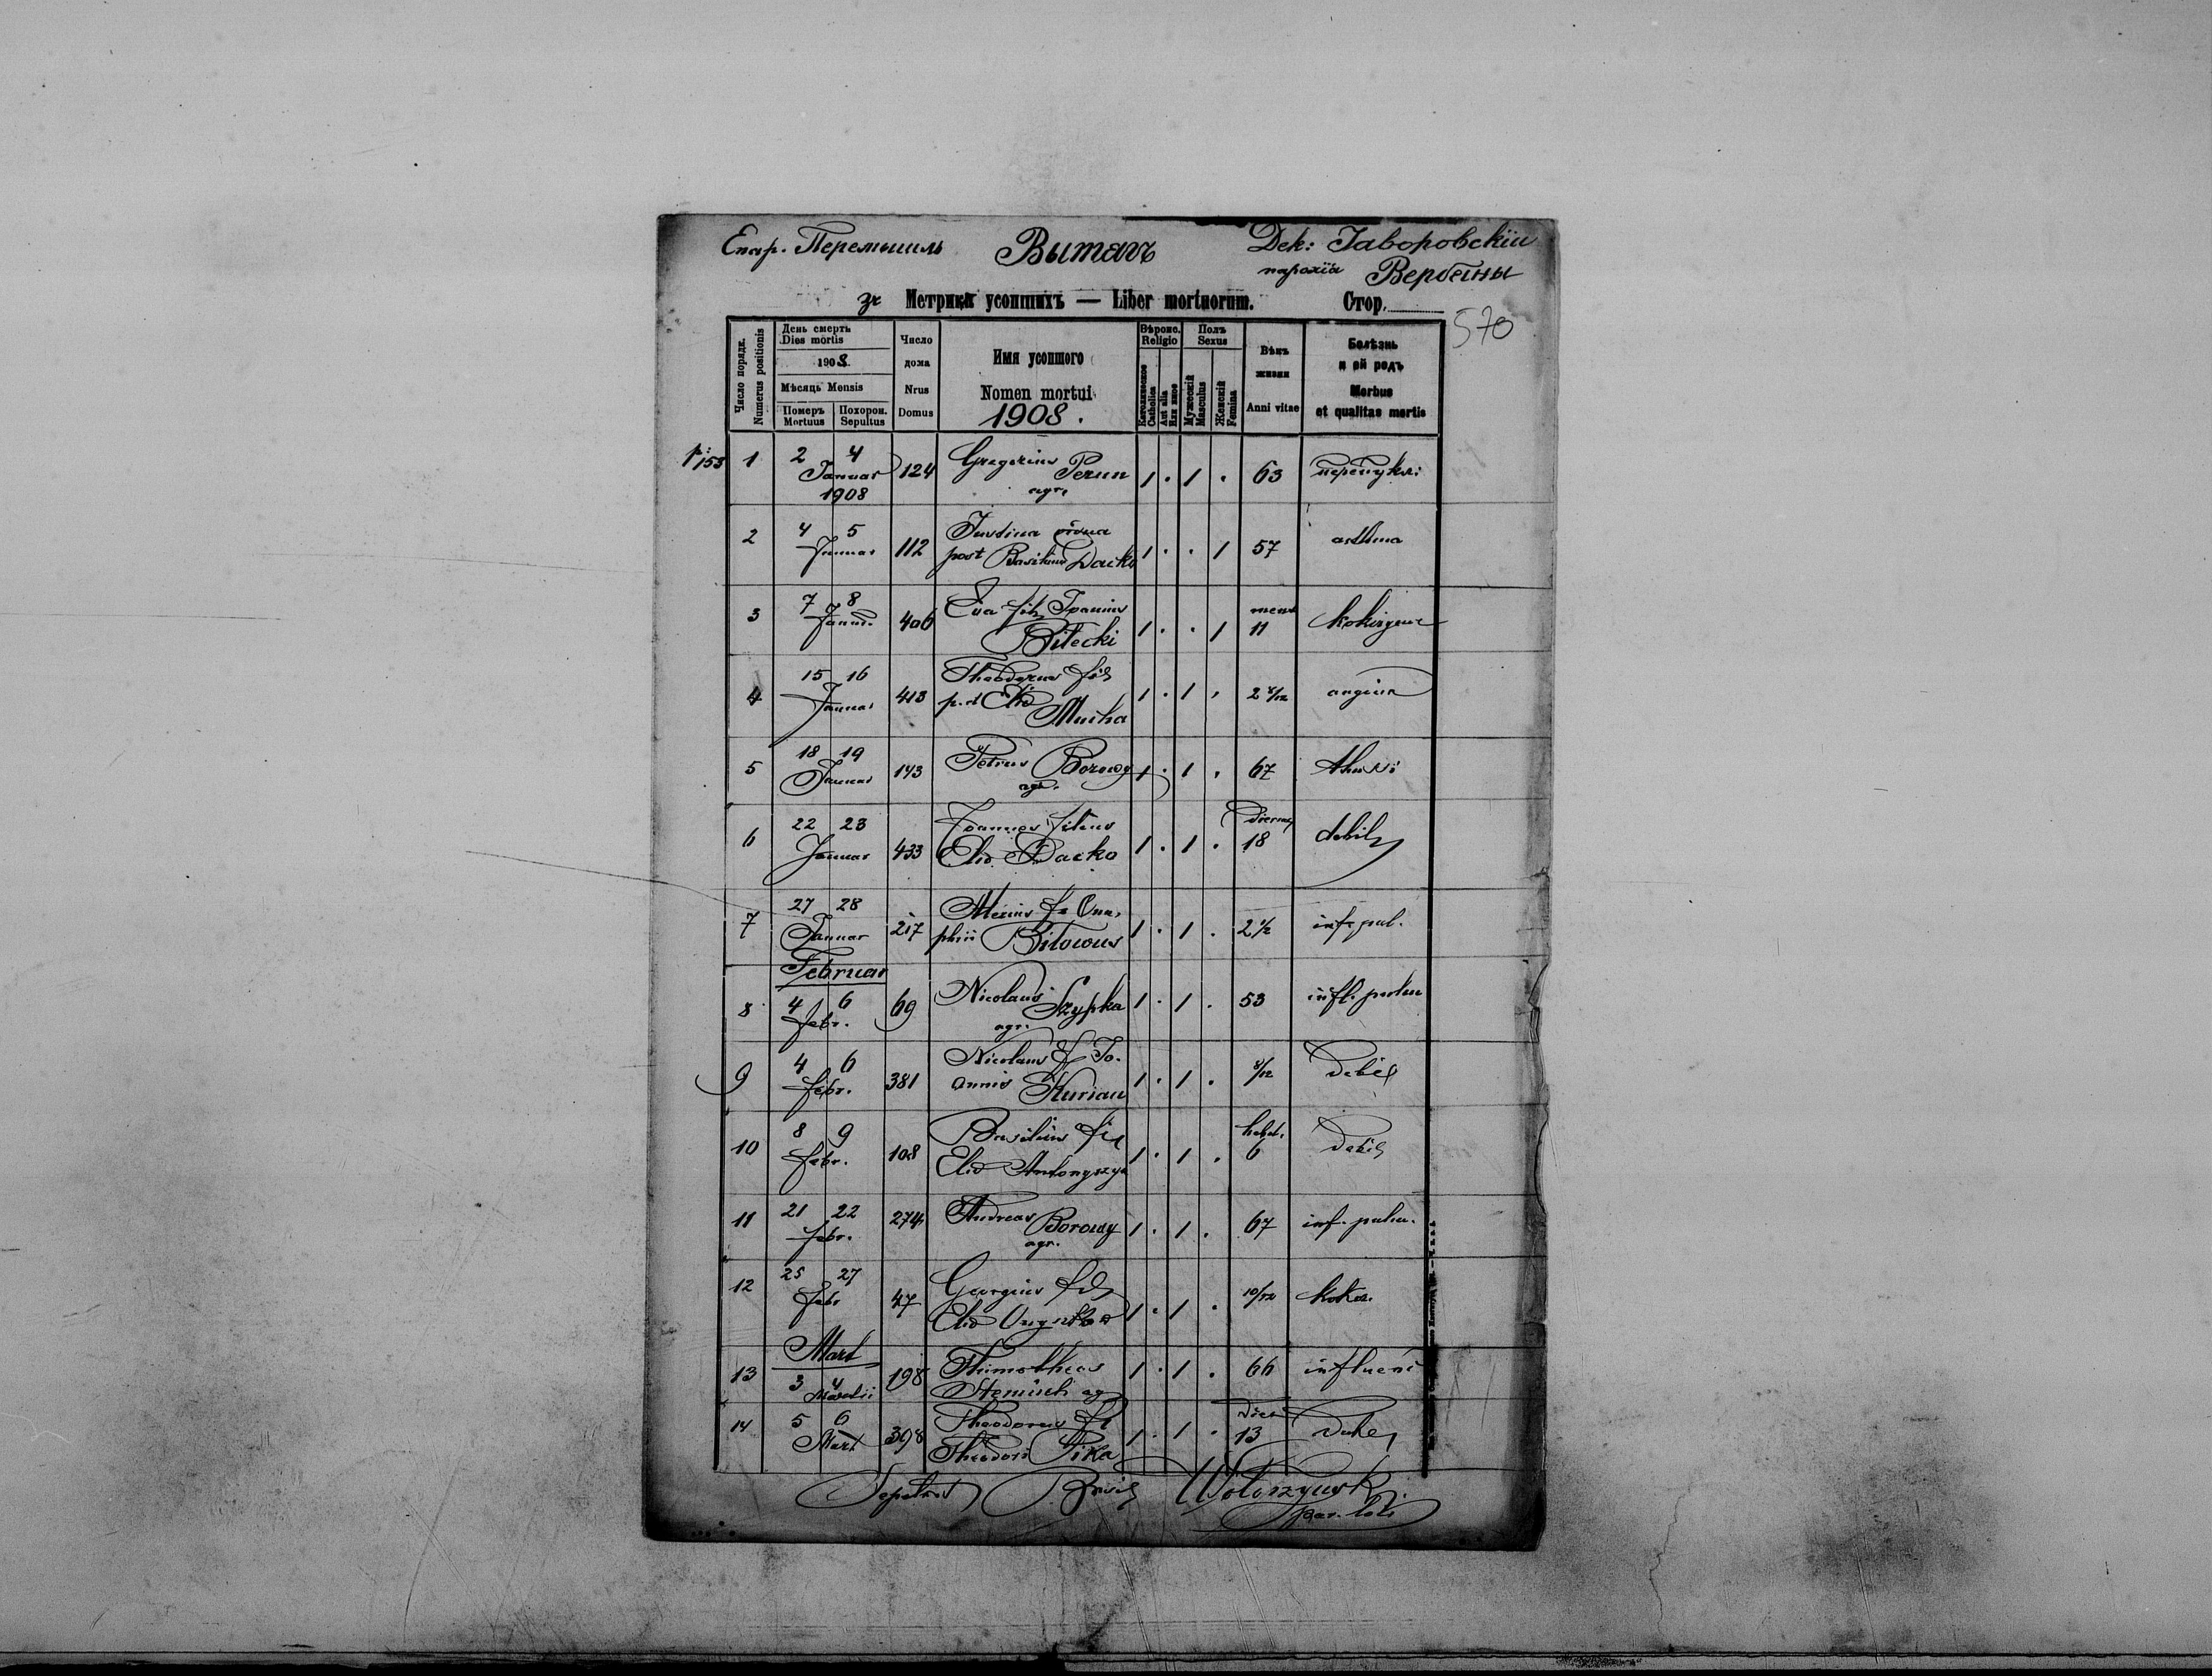 Епар. Перемышль Вытягъ Дек: Яворовскіи
парохія Вербяны
зъ Метрика усопшихъ — Liber mortuorum. Стор.
570
Число порядк. Numerus positionis
День смерть
Dies mortis
1908
Мѣсяць Mensis
Померъ Mortuus
Похорон. Sepultus
Число дома
Nrus Domus
Имя усопшого
Nomen mortui
1908.
Вѣроис. Religio
Католическое Catholica
Или иное Aut alia
Полъ Sexus
Мужескій Masculus
Женскій Femina
Вѣкъ жизни
Anni vitae
Болѣзнь и ей родъ
Morbus et qualitas mortis
1 2 4 Januar 1908 124 Gregorius Perun agr. 1 . 1 . 63
2 4 5 Januar 112 Justina vidua post Basilium Dacko 1 . . 1 57 asthma
3 7 8 Januar. 406 Eva fil Joannis Bilecki 1 . . 1 mens 11
4 15 16 Januar 413 Theodorus fil Mucha 1 . 1 . 2 angina
5 18 19 Januar 143 Petrus Borowy agr. 1 . 1 . 67
6 22 23 Januar 433 Joannes filius Eliæ Dacko 1 . 1 . dierum 18 debil
7 27 28 Januar 217 Alexius f. Onuphrii Bilowus 1 . 1 . 2 1/2 inf. pul.
Februar
8 4 6 febr. 69 Nicolaus Szypka agr. 1 . 1 . 53 infl. pulm
9 4 6 febr. 381 Nicolaus f Joannis Kurian 1 . 1 . debil
10 8 9 febr. 108 Basilius fil Eliæ 1 . 1 . hebd. 6 debil
11 21 22 febr. 274 Andreas Borowy agr. 1 . 1 . 67 inf. pulm.
12 25 27 febr 47 Georgius fil Eliæ 1 . 1 . 10/12 kokl.
Mart
13 3 4 Martii 198 Thimotheus 1 . 1 . 66 influenc
14 5 6 Mart 398 Theodorus fil Theodori Pika 1 . 1 . dies 13
Sepelivit Basil Wołoszynski
par. loci